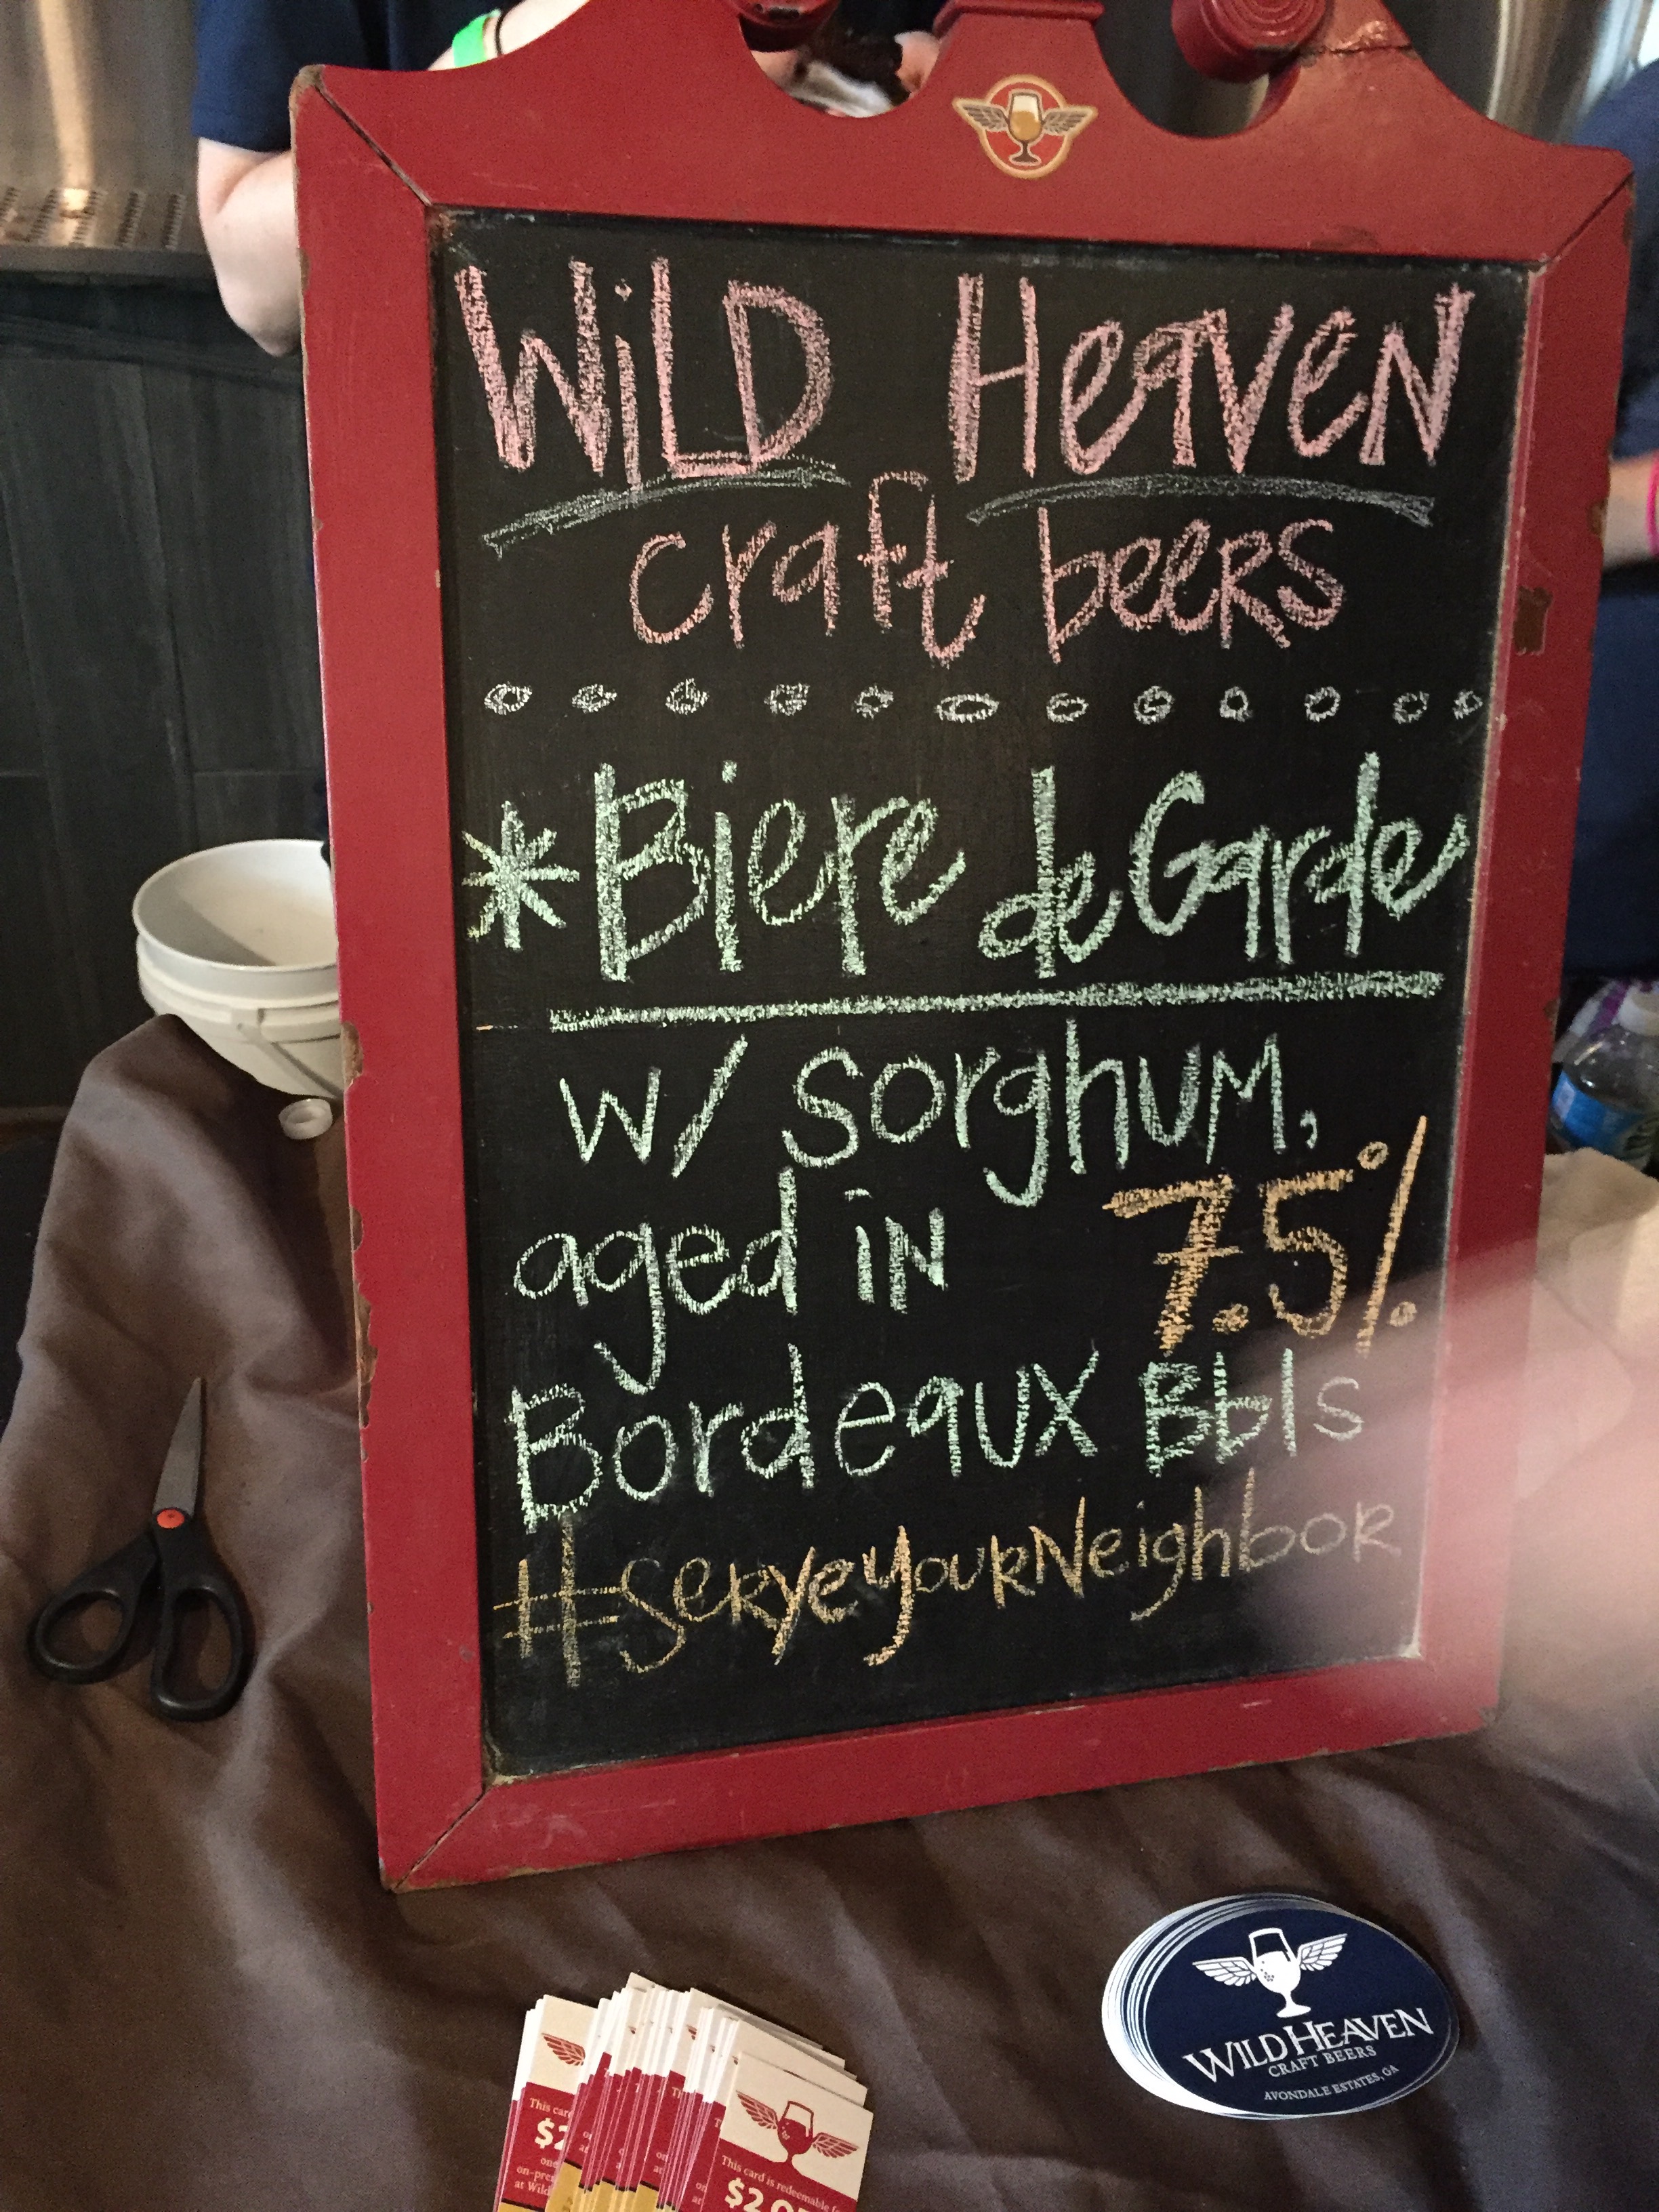 WiLD HeaveN
craft beeRS
*Biere de Garde
w/ sorghuM,
aged iN 7.5%
Bordeaux BblS
#SeRVeyouRNeighboR
WILD HEAVEN
CRAFT BEERS
AVONDALE ESTATES, GA
This card
$2
one
on-pre
at Wild
This card is redeemable f
$2 O